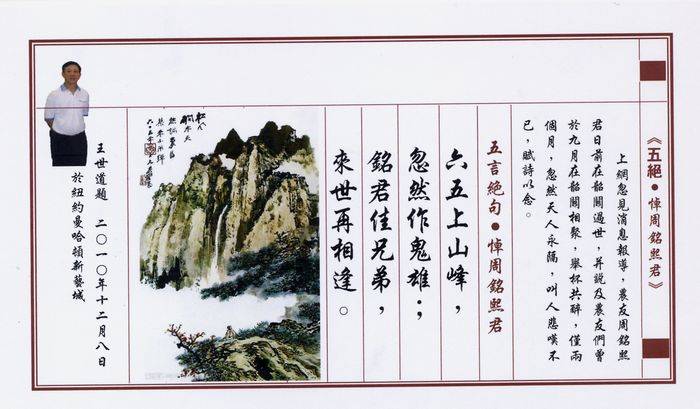 《五絕•悼周銘熙君》
上網忽見消息報導，農友周銘熙
君日前在韶關過世，并說及農友們曾
於九月在韶關相聚，舉杯共醉，僅兩
個月，忽然天人永隔，叫人悲嘆不
已，賦詩以念。
五言絕句•悼周銘熙君
六五上山峰，
忽然作鬼雄；
銘君佳兄弟，
來世再相逢。
王世道題 二〇一〇年十二月八日
於紐約曼哈頓新藝城